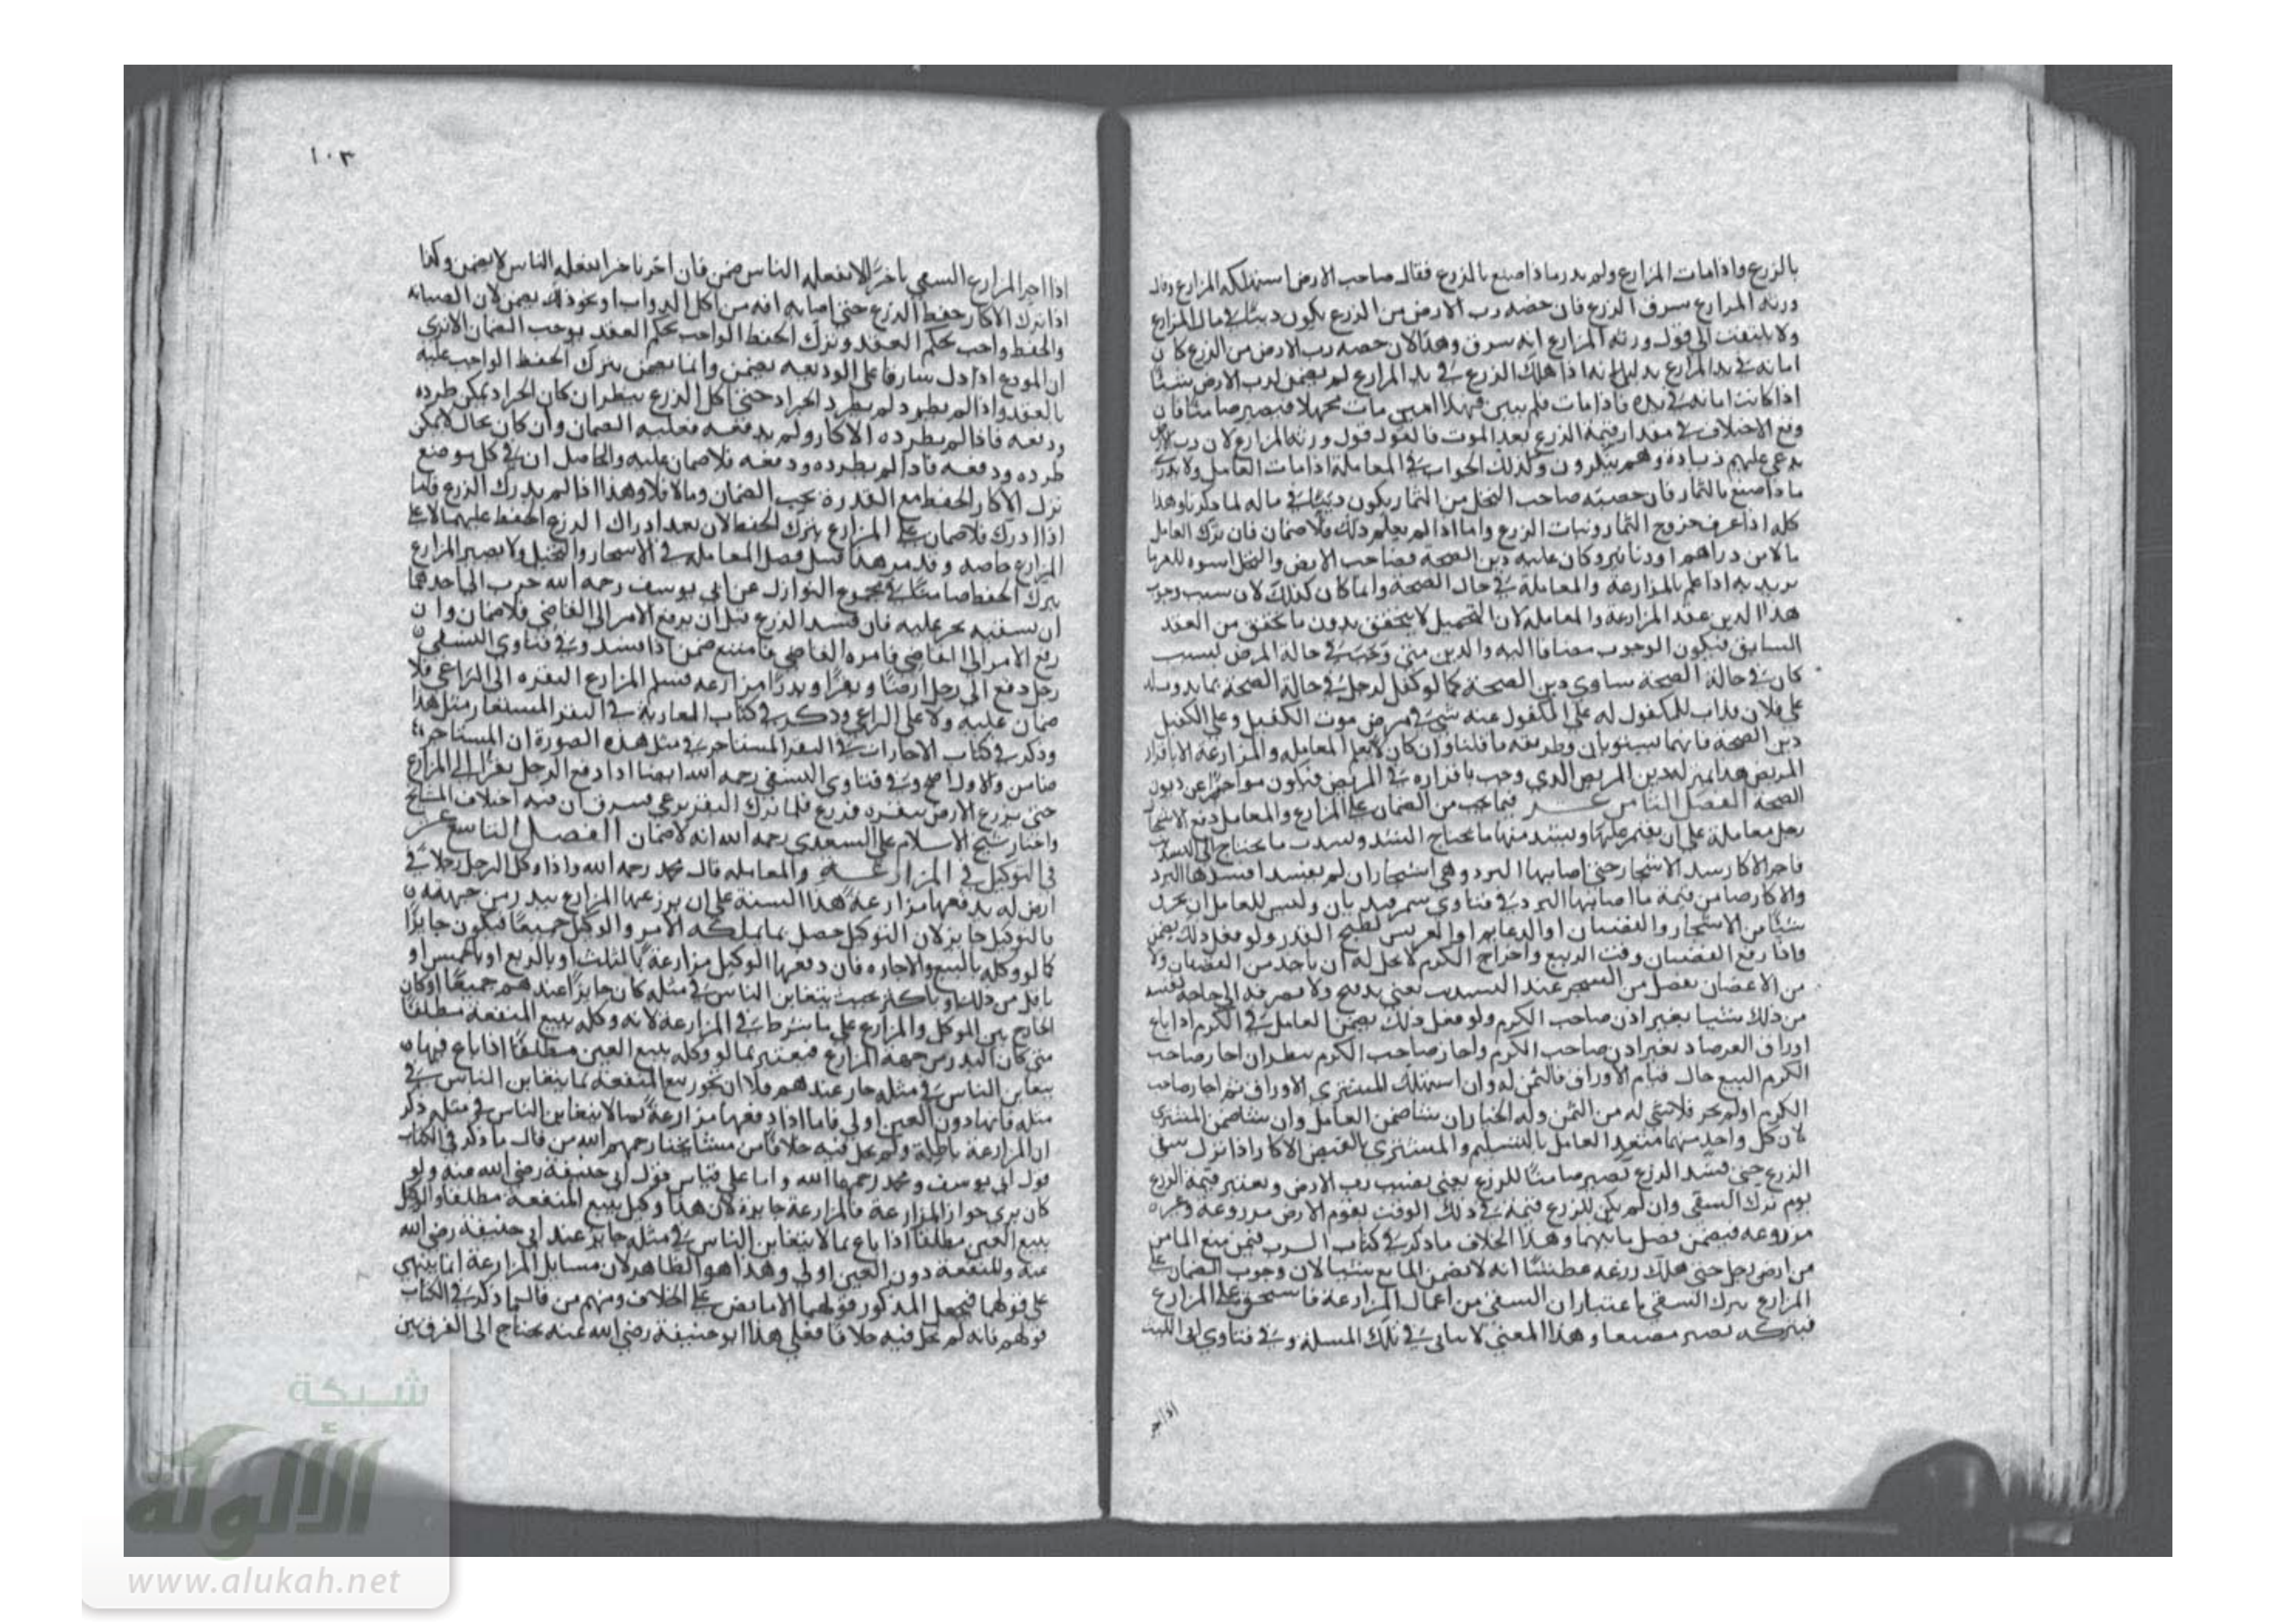 بالزرع واذا مات المزارع ولم يدر ماذا صنع بالزرع فقال صاحب الارض استهلكه المزارع وقال
ورثة المزارع سرق الزرع فان حصة رب الارض من الزرع يكون دينا في مال المزارع
ولا يلتفت الى قول ورثة المزارع انه سرق وهذا لان حصة رب الارض من الزرع كان
امانة في يد المزارع بدليل انه اذا هلك الزرع في يد المزارع لم يضمن لرب الارض شيئا
اذا كانت امانة في يده فاذا مات فلم يبين فهذا امين مات مجهلا فيصير ضامنا فان
وقع الاختلاف في مقدار قيمة الزرع بعد الموت فالقول قول ورثة المزارع لان رب الارض
يدعي عليهم زيادة وهم ينكرون وكذلك الجواب في المعاملة اذا مات العامل ولا يدرى
ماذا صنع بالثمار فان حصة صاحب النخل من الثمار يكون دينا في ماله لما ذكرنا وهذا
كله اذا عرف خروج الثمار ونبات الزرع واما اذا لم يعلم ذلك فلا ضمان فان ترك العامل
مالا من دراهم او دنانير وكان عليه دين الصحة فصاحب الارض والنخل اسوة للغرما
يريد به اذا علم بالمزارعة والمعاملة في حال الصحة وانما كان كذلك لان سبب وجوب
هذا الدين عقد المزارعة والمعاملة لان التجهيل لا يتحقق بدون ما تحقق من العقد
السابق فيكون الوجوب مضافا اليه والدين متى وجب في حالة المرض لسبب
كان في حالة الصحة ساوى دين الصحة كما لو كفل لرجل في حالة الصحة بما يذوب له
على فلان فذاب للمكفول له على المكفول عنه شي في مرض موت الكفيل وعلى الكفيل
دين الصحة فانهما يستويان وطريقه ما قلنا وان كان لا يعلم المعاملة والمزارعة الا باقرار
المريض هذا بمنزلة دين المريض الذي وجب باقراره في المرض فيكون مواخرا عن ديون
الصحة الفصل الثامن عشر فيما يجب من الضمان على المزارع والمعامل دفع الاشجار
رجل معاملة على ان يقوم عليها ويشد منها ما يحتاج الى الشد
فاخر الاكار شد الاشجار حتى اصابها البرد وهي اشجار ان لم يشد افسدها البرد
والاكار ضامن قيمة ما اصابها البرد في فتاوى سمرقند بان وليس للعامل ان يحرق
شيئا من الاشجار والقضبان او الدعايم او العريش لطبخ القدر ولو فعل ذلك يضمن
واذا رفع القضبان وقت الربيع واخراج الكرم لا يحل له ان ياخذ من القضبان ولا
من الاغصان
من ذلك شيئا بغير اذن صاحب الكرم ولو فعل ذلك يضمن العامل في الكرم اذا باع
اوراق الفرصاد بغير اذن صاحب الكرم واجاز صاحب الكرم ينظر ان اجاز صاحب
الكرم البيع حال قيام الاوراق فالثمن له وان استهلك المشتري الاوراق ثم اجاز صاحب
الكرم اولم يجز فلا شي له من الثمن وله الخيار ان شا ضمن العامل وان شا ضمن المشتري
لان كل واحد منهما متعد العامل بالتسليم والمشتري بالقبض الاكار اذا ترك سقي
الزرع حتى فسد الزرع يصير ضامنا للزرع يعني نصيب رب الارض ويعتبر قيمة الزرع
يوم ترك السقي وان لم يكن للزرع قيمة في ذلك الوقت يقوم الارض مزروعة وغير
مزروعة فيضمن فضل ما بينهما وهذا الخلاف ما ذكر في كتاب الشرب فيمن منع الما من
من ارض رجل حتى هلك زرعه عطشا انه لا يضمن المانع شيئا لان وجوب الضمان على
المزارع بترك السقي باعتبار ان السقي من اعمال المزارعة فاستحق على المزارع
فبتركه يصير مضيعا وهذا المعنى لا يتاتى في تلك المسلة وفي فتاوى ابي الليث
اذا اخر
١٠٣
اذا اخر المزارع السقي تاخيرا لا يفعله الناس ضمن فان اخر تاخيرا يفعله الناس لا يضمن وكذا
اذا ترك الاكار حفظ الزرع حتى اصابه افة من اكل الدواب او نحو ذلك يضمن لان الصيانة
والحفظ واجب بحكم العقد وترك الحفظ الواجب بحكم العقد يوجب الضمان الا ترى
ان المودع اذا دل سارقا على الوديعة يضمن وانما يضمن بترك الحفظ الواجب عليه
بالعقد واذا لم يطرد الجراد حتى اكل الزرع ينظر ان كان الجراد يمكن طرده
ودفعه فاذا لم يطرده الاكار ولم يدفعه فعليه الضمان وان كان بحال لا يمكن
طرده ودفعه فاذا لم يطرده ودفعه فلا ضمان عليه والحاصل ان في كل موضع
ترك الاكار الحفظ مع القدرة يجب الضمان وما لا فلا وهذا اذا لم يدرك الزرع فاما
اذا ادرك فلا ضمان على المزارع بترك الحفظ لان بعد ادراك الزرع الحفظ عليهما لا على
المزارع خاصة وقد مر هذا قبل فصل المعاملة في الاشجار والنخيل ولا يصير المزارع
بترك الحفظ ضامنا في مجموع النوازل عن ابي يوسف رحمه الله حرث الى احدهما
ان يسقيه يجبر عليه فان فسد الزرع قبل ان يرفع الامر الى القاضي فلا ضمان وان
رفع الامر الى القاضي فامره القاضي فامتنع ضمن اذا فسد وفي فتاوى النسفي
رجل دفع الى رجل ارضا وبقرا وبذرا مزارعة فسلم المزارع البقرة الى الراعي فلا
ضمان عليه ولا على الراعي وذكر في كتاب العارية في البقر المستعار مثل هذا
وذكر في كتاب الاجارات في البقر المستاجر في مثل هذه الصورة ان المستاجر
ضامن والاول اصح وفي فتاوى النسفي رحمه الله ايضا اذا دفع الرجل بقرا الى المزارع
حتى يزرع الارض ببقره فزرع فلما ترك البقر يرعى فسرق ان فيه اختلاف المشايخ
واختار شيخ الاسلام علي السعدي رحمه الله انه لا ضمان الفصل التاسع عشر
في التوكيل في المزارعة والمعاملة قال محمد رحمه الله واذا وكل الرجل رجلا في
ارض له يدفعها مزارعة هذا السنة على ان يزرعها المزارع ببذر من جهته
بالتوكيل جايز لان التوكيل حصل بما يملكه الامر والوكيل جميعا فيكون جايزا
كما لو وكله بالبيع والاجارة فان دفعها الوكيل مزارعة بالثلث او بالربع او بالخمس او
باقل من ذلك او باكثر بحيث يتغابن الناس في مثله كان جايزا عندهم جميعا وكان
الخارج بين الموكل والمزارع على ما شرط في المزارعة لانه وكله ببيع المنفعة مطلقا
متى كان البذر من جهة المزارع فيعتبر بما لو وكله ببيع العين مطلقا اذا باع فيما
يتغابن الناس في مثله جاز عندهم فلا ان يجوز بيع المنفعة بما يتغابن الناس في
مثله فانها دون العين اولى فاما اذا دفعها مزارعة بما لا يتغابن الناس في مثله ذكر
ان المزارعة باطلة ولم يحل فيه خلافا من مشايخنا رحمهم الله من قال ما ذكر في الكتاب
قول ابي يوسف ومحمد رحمهما الله واما على قياس قول ابي حنيفة رضي الله عنه ولو
كان يرى جواز المزارعة فالمزارعة جايزة لان هذا وكيل ببيع المنفعة مطلقا والوكيل
ببيع العين مطلقا اذا باع بما لا يتغابن الناس في مثله جايز عند ابي حنيفة رضي الله
عنه وللمنفعة دون العين اولى وهذا هو الظاهر لان مسايل المزارعة انما ينبني
على قولهما فيجعل المذكور قولهما الا ما نص على الخلاف ومنهم من قال بما ذكر في الكتاب
قولهم فانه لم يحل فيه خلافا فعلى هذا ابو حنيفة رضي الله عنه يحتاج الى الفرق بين
شبكة
الألوكة
www.alukah.net